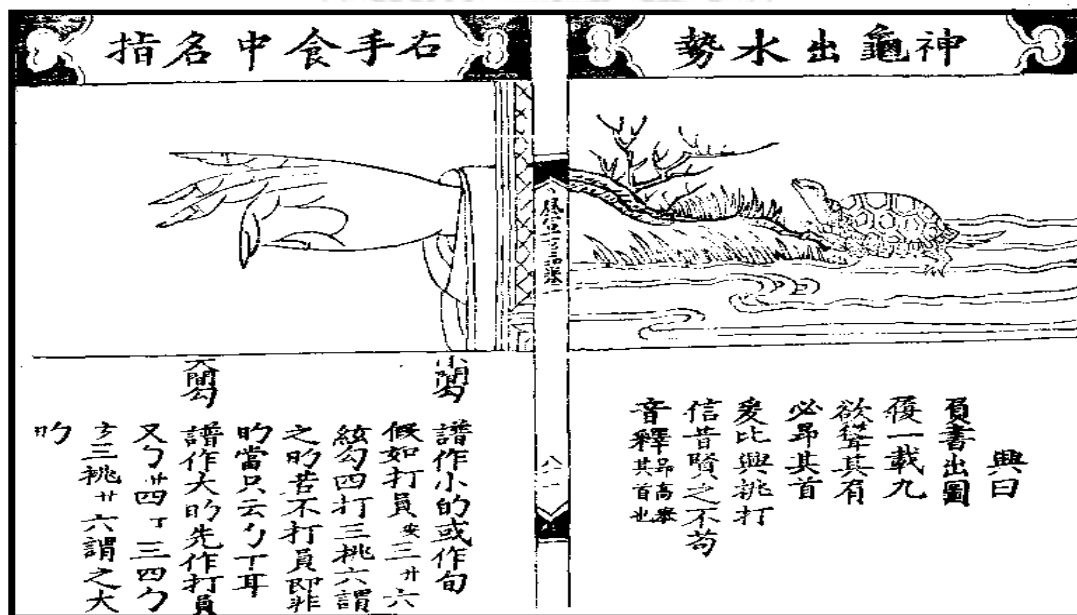 神龜出水勢
興曰
負書出圖
履一載九
欲聳其有
必昂其首
爰比興挑打
信昔賢之不苟
音釋 昂高舉其首也
右手食中名指
小間勾
譜作小的或作旬
假如打員 三廾六
絃勾四打三挑六謂
之 若不打員即非
當只云勹丁耳
大間勾
譜作大 先作打員
又勹廾四丁三四勹
三挑廾六謂之大